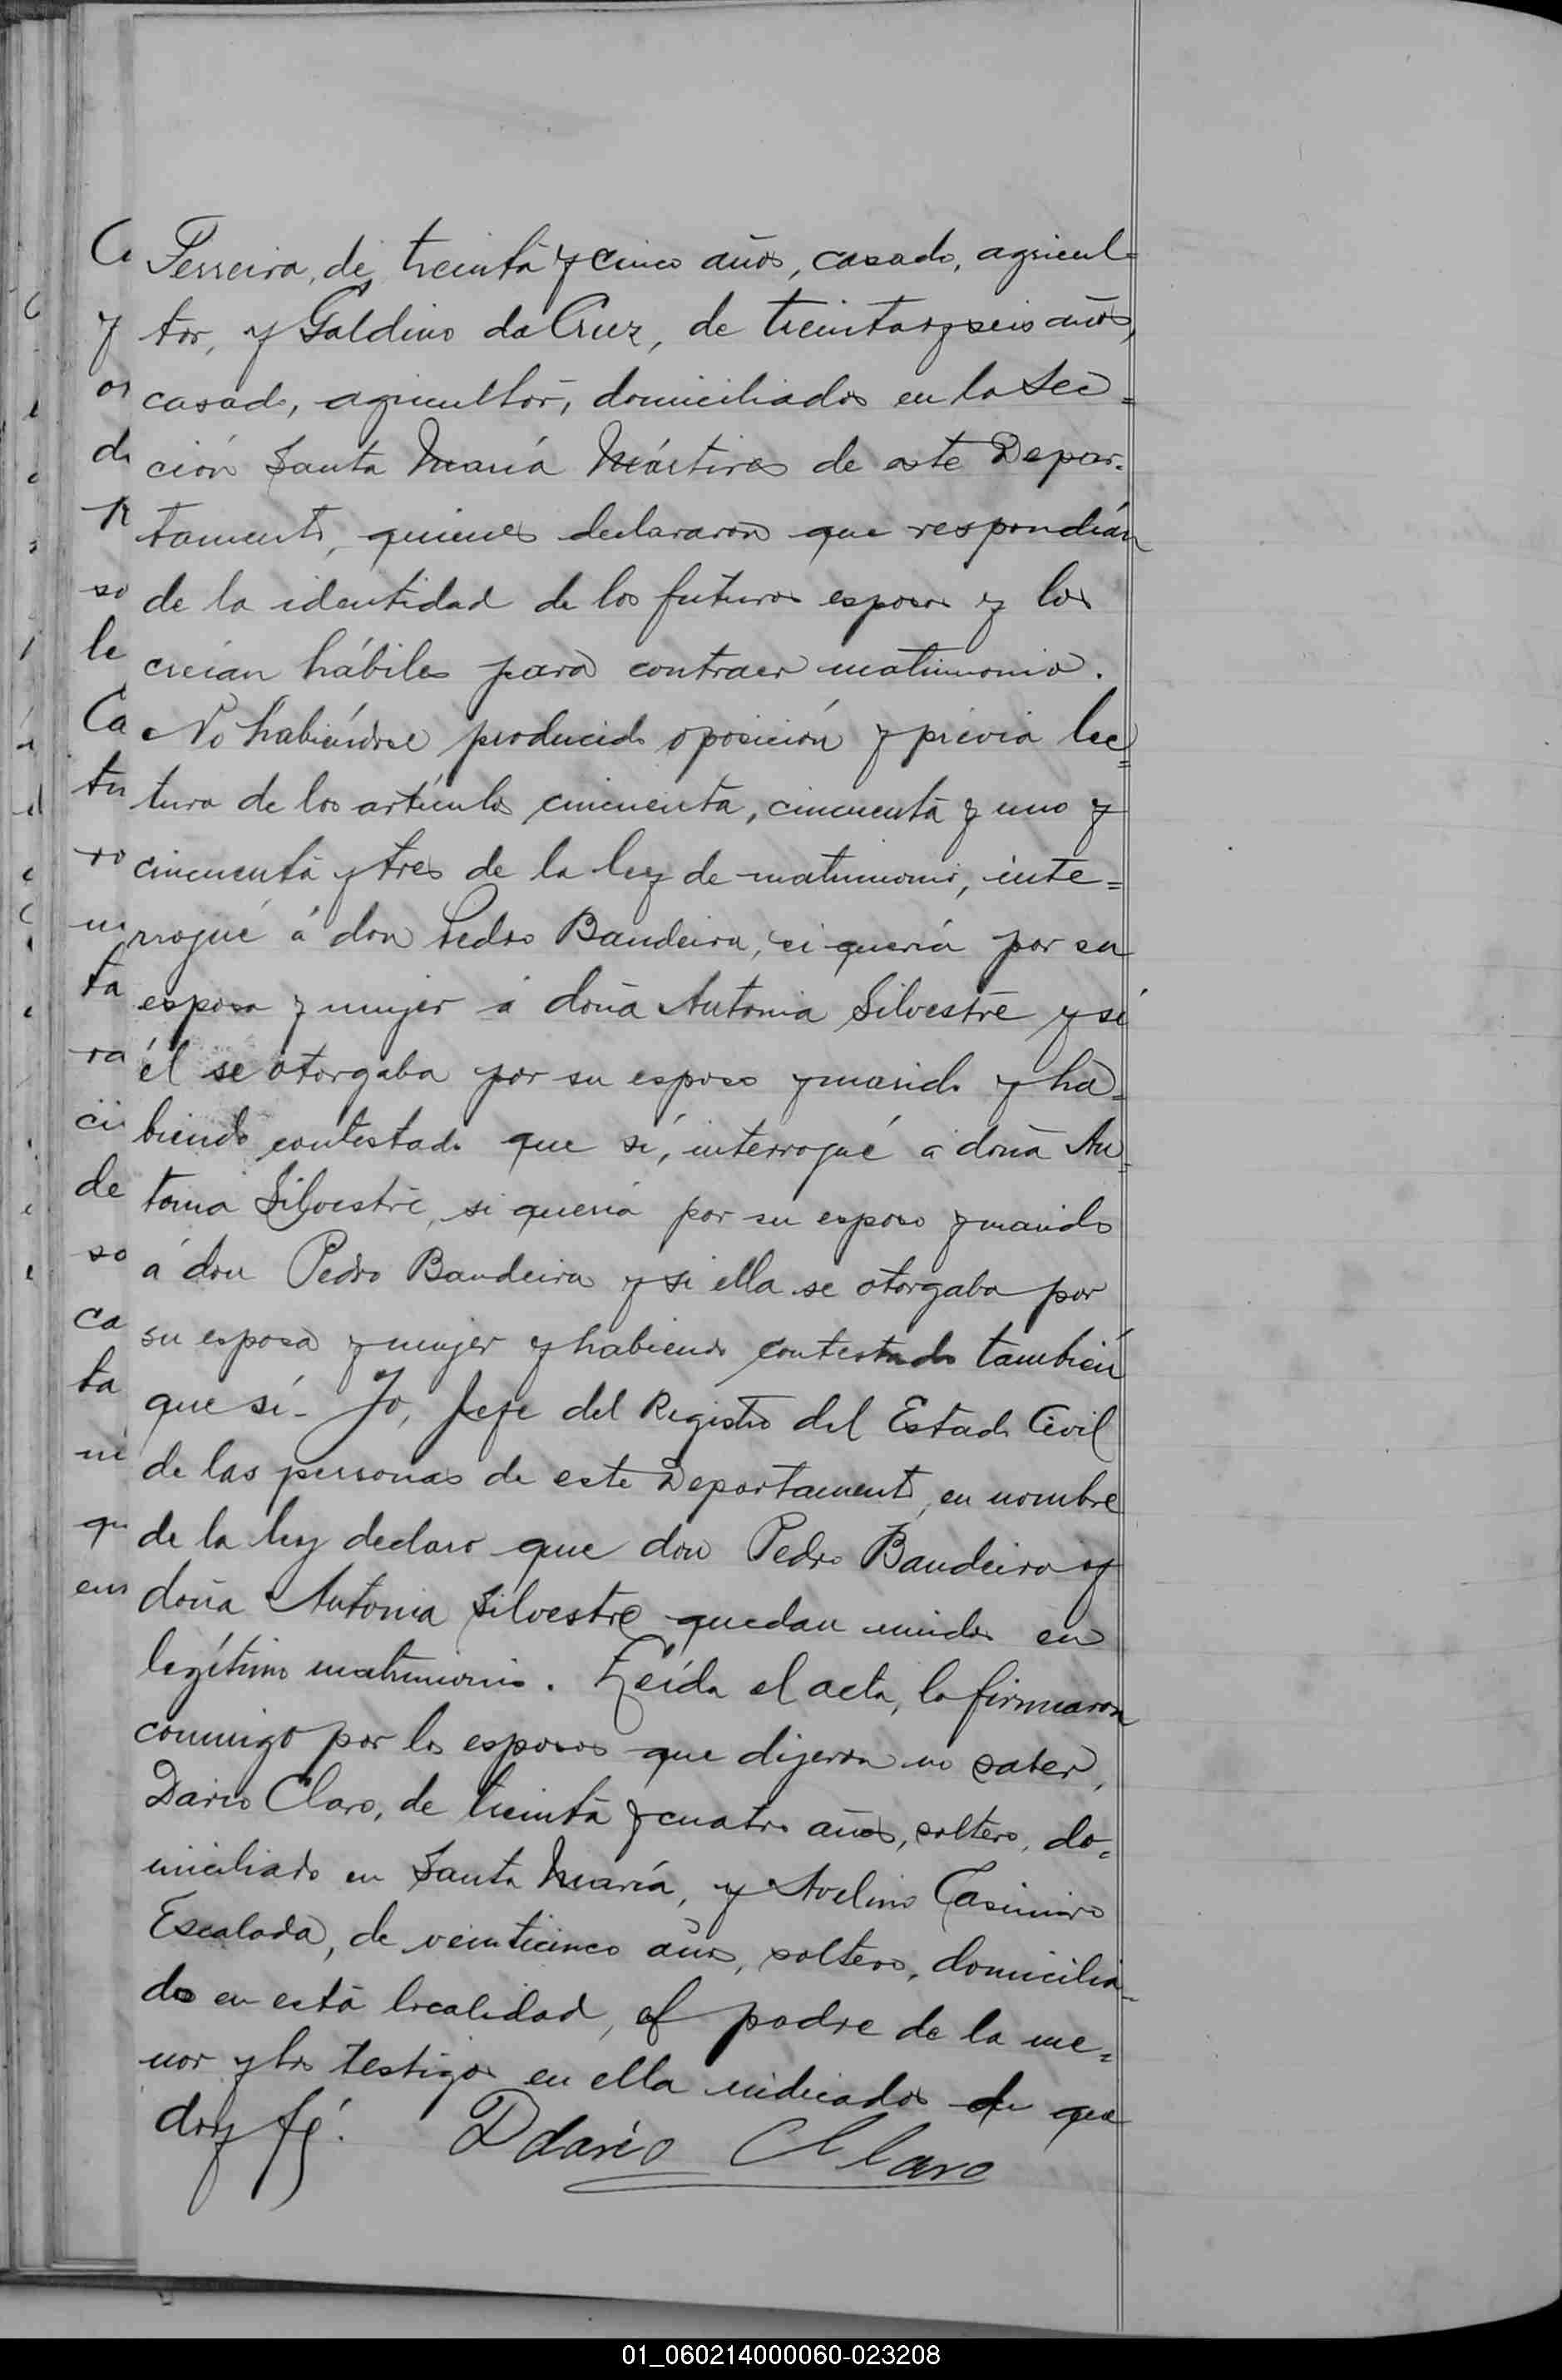 Ferreira, de treinta y cinco años, casado, agricul=
tor, y Galdino da Cruz, de treinta y seis años,
casado, agricultor, domiciliados en la Sec=
ción Santa María Mártires de este Depar=
tamento, quienes declararon que respondían
de la identidad de los futuros esposos y los
creían hábiles para contraer matrimonio.
No habiéndose producido oposición y previa lec=
tura de los artículos cincuenta, cincuenta y uno y
cincuenta y tres de la ley de matrimonio, inte=
rrogué á don Pedro Bandeira, si quería por su
esposa y mujer á doña Antonia Silvestre y si
él se otorgaba por su esposo y marido y ha=
biendo contestado que sí, interrogué á doña An=
tonia Silvestre, si quería por su esposo y marido
á don Pedro Bandeira y si ella se otorgaba por
su esposa y mujer y habiendo contestado también
que sí - Yo, Jefe del Registro del Estado Civil
de las personas de este Departamento, en nombre
de la ley declaro que don Pedro Bandeira y
doña Antonia Silvestre quedan unidos en
legítimo matrimonio. Leída el acta, la firmaron
conmigo por los esposos que dijeron no saber,
Dario Claro, de treinta y cuatro años, soltero, do=
miciliado en Santa María, y Avelino Casimiro
Escalada, de veinticinco años, soltero, domicilia=
do en esta localidad, el padre de la me=
nor y los testigos en ella indicados de que
doy fé.
Ddario Cllaro
01_060214000060-023208